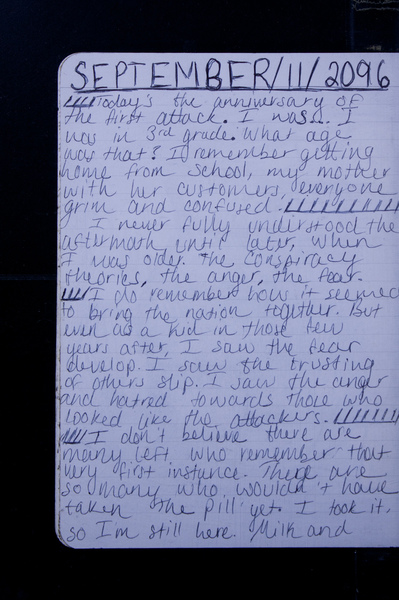 SEPTEMBER/11/2096
Today's the anniversary of
the first attack. I was.. I
was in 3rd grade. what age
was that? I remember getting
home from school, my mother
with her customers, everyone
grim and confused.
I never fully understood the
aftermath until later, when
I was older. The conspiracy
theories, the anger, the fear.
I do remember how it seemed
to bring the nation together. But
even as a kid in those few
years after, I saw the fear
develop. I saw the trusting
of others slip. I saw the anger
and hatred towards those who
looked like the attackers.
I don't believe there are
many left who remember that
very first instance. There are
so many who wouldn't have
taken the pill yet. I took it,
so I'm still here. Milk and